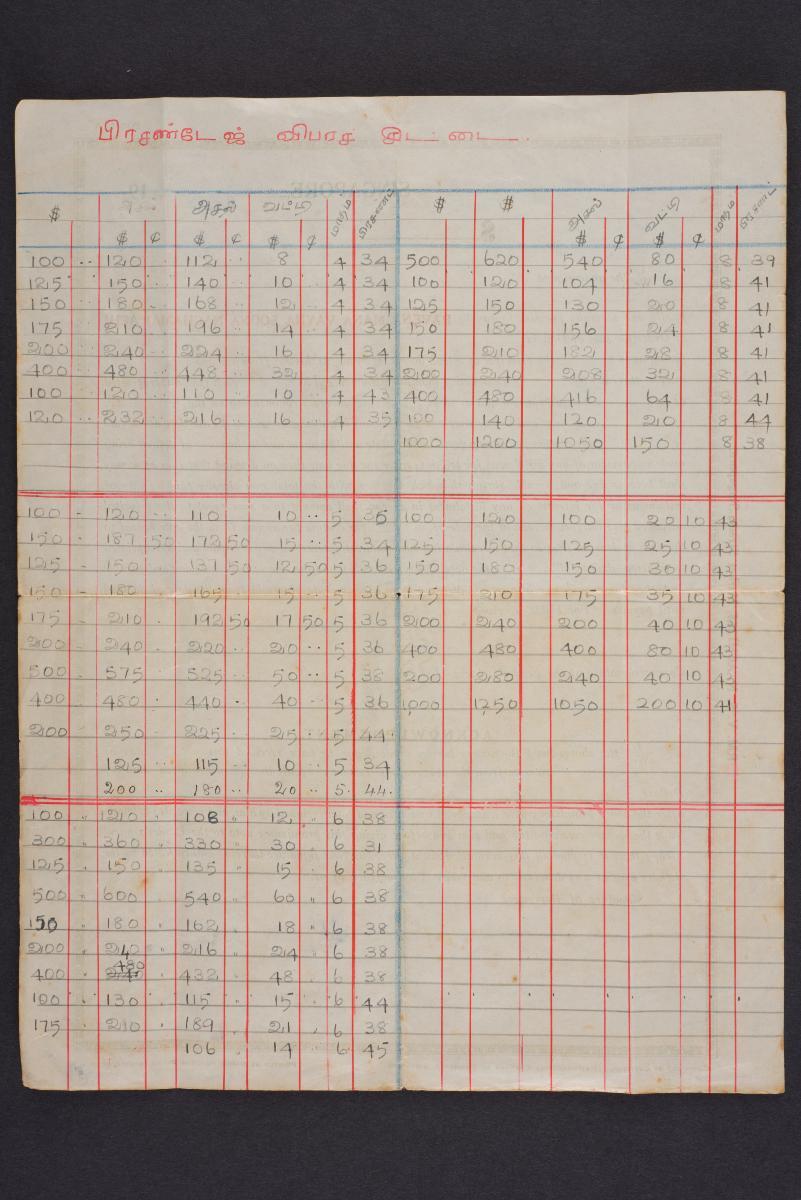 பிரசண்டேஜ் விபரச அட்டடை
$ அசல் வட்டி மாதம் $ $ அசல் வட்டி மாதம்
$ ¢ $ ¢ $ ¢ $ ¢ $ ¢
100 .. 120 .. 112 .. 8 4 34 500 620 540 80 8 39
125 150 .. 140 .. 10 .. 4 34 100 120 104 16 8 41
150 .. 180 .. 168 .. 12 .. 4 34 125 150 130 20 8 41
175 210 .. 196 .. 14 .. 4 34 150 180 156 24 8 41
200 .. 240 .. 224 .. 16 .. 4 34 175 210 182 28 8 41
400 .. 480 .. 448 .. 32 .. 4 34 200 240 208 32 8 41
100 .. 120 .. 110 .. 10 .. 4 43 400 480 416 64 8 41
120 .. 232 .. 216 .. 16 .. 4 35 100 140 120 20 8 44
1000 1200 1050 150 8 38
100 - 120 .. 110 10 .. 5 36 100 120 100 20 10 43
150 - 187 50 172 50 15 .. 5 34 125 150 125 25 10 43
125 - 150 137 50 12 50 5 36 150 180 150 30 10 43
150 - 180 165 15 .. 5 36 175 210 175 35 10 43
175 - 210 192 50 17 50 5 36 200 240 200 40 10 43
200 - 240 .. 220 .. 20 .. 5 36 400 480 400 80 10 43
500 - 575 525 50 .. 5 38 200 280 240 40 10 43
400 480 440 40 .. 5 36 1,000 1,250 1050 200 10 41
200 - 250 .. 225 .. 25 .. 5 44
125 .. 115 .. 10 .. 5 34
200 .. 180 .. 20 .. 5 44
100 " 120 " 108 " 12 " 6 38
300 " 360 " 330 " 30 " 6 31
125 " 150 " 135 15 6 38
500 " 600 540 60 " 6 38
150 " 180 162 " 18 " 6 38
200 " 240 " 216 " 24 " 6 38
480
400 " 240 432 " 48 " 6 38
100 " 130 115 " 15 " 6 44
175 " 210 " 189 21 " 6 38
106 " 14 " 6 45